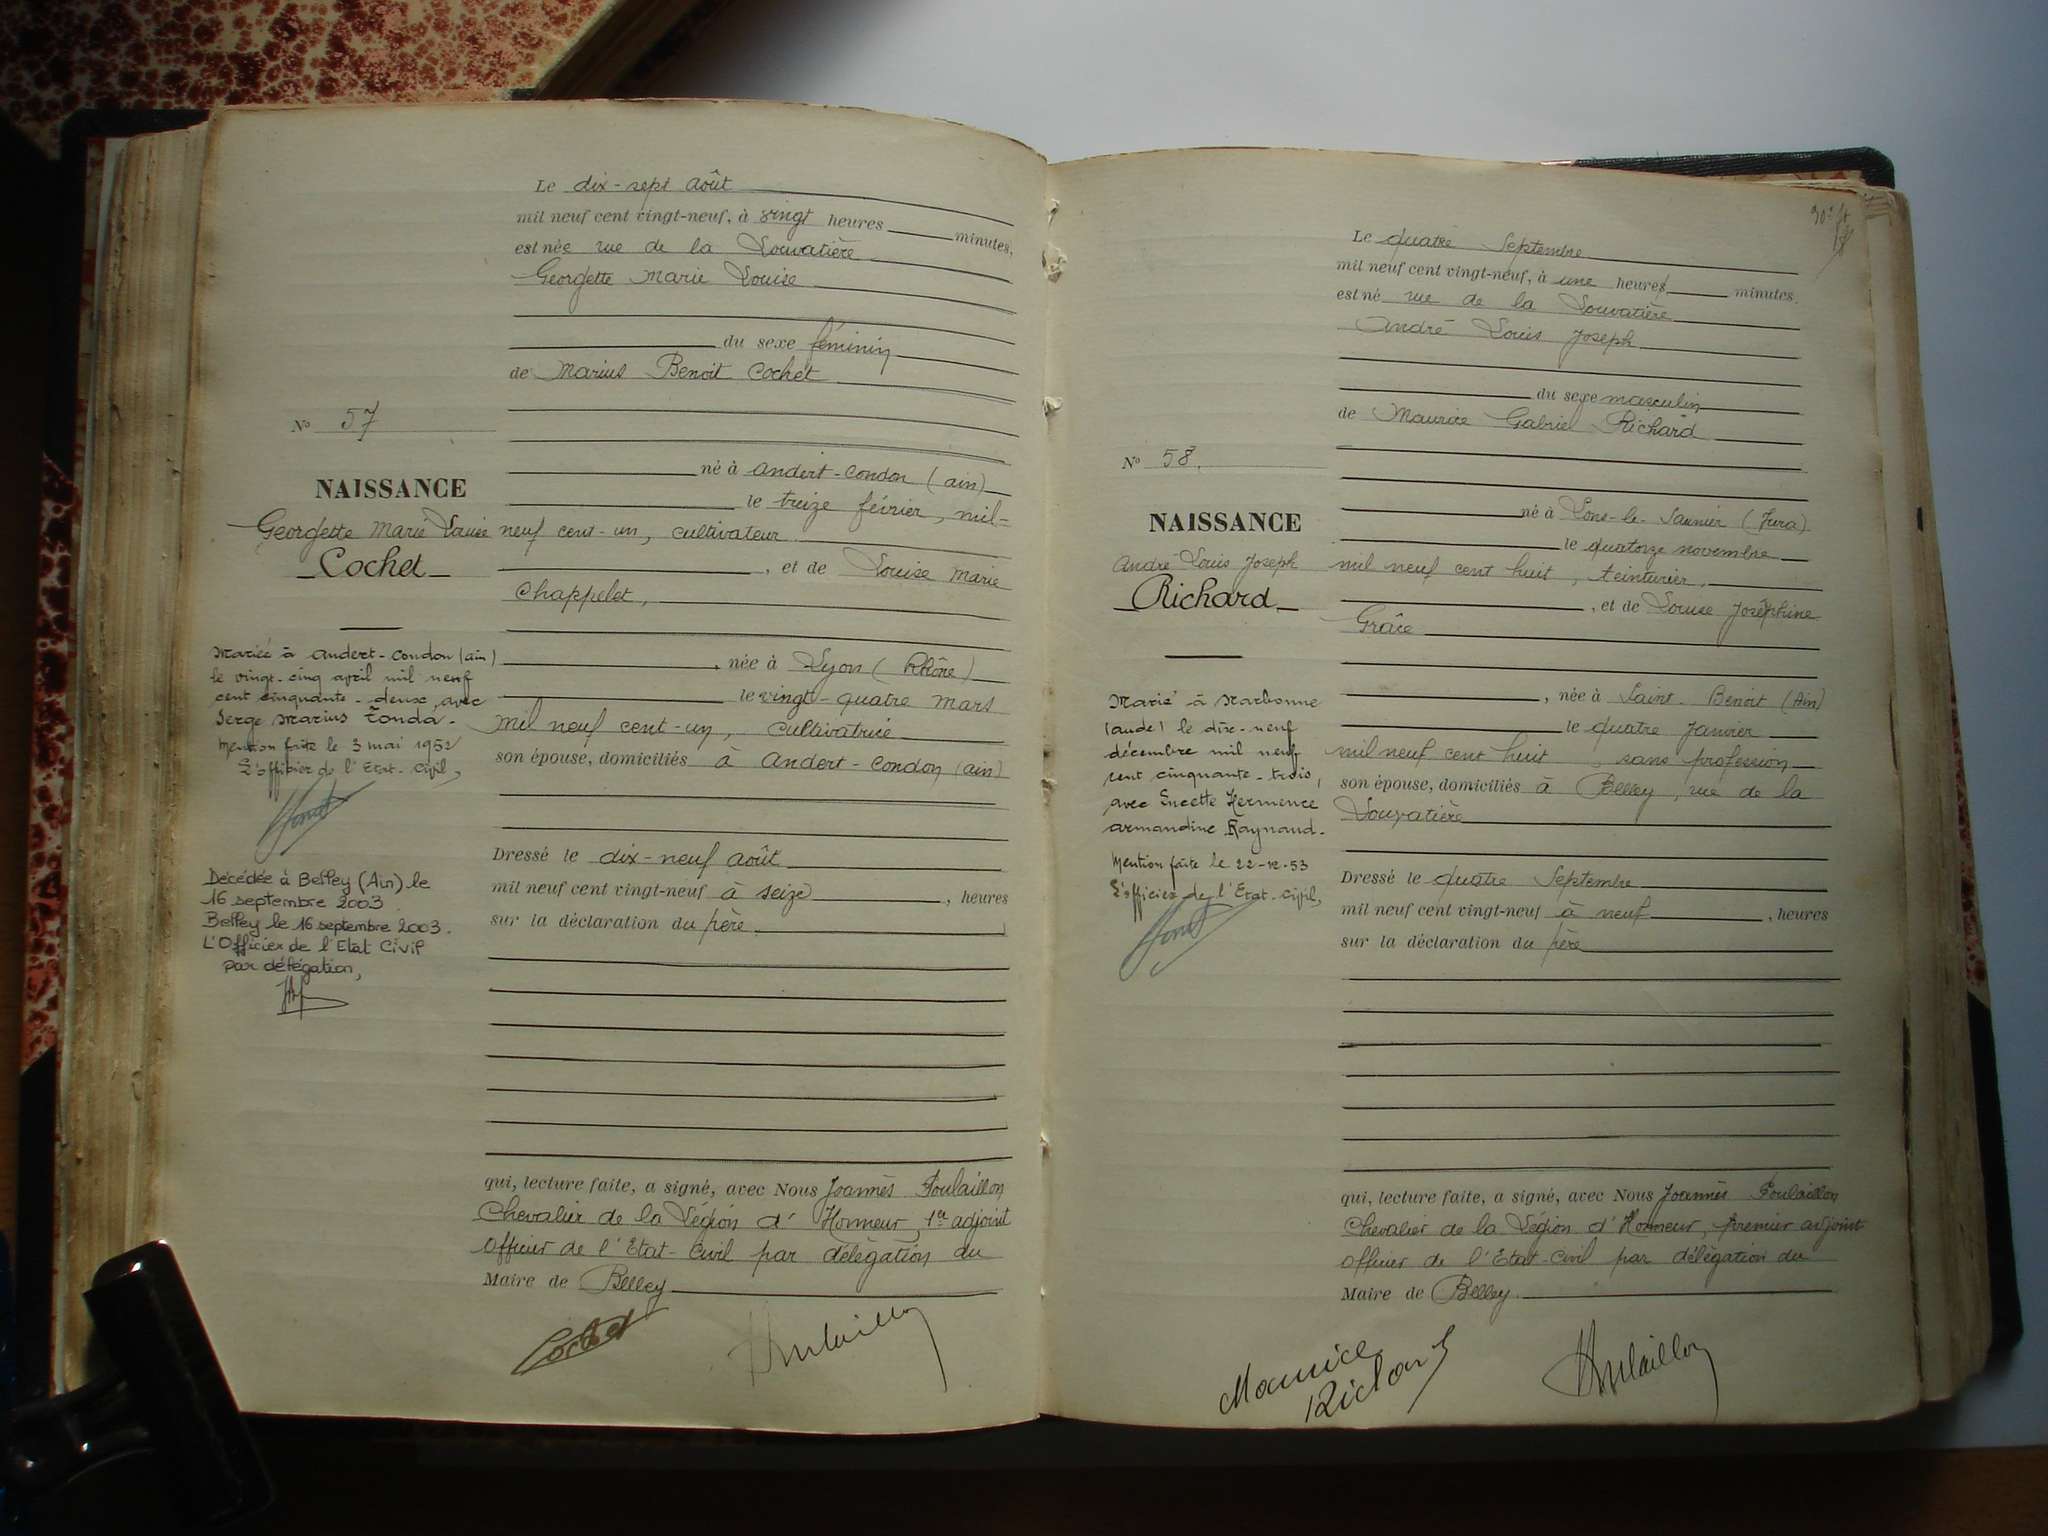 Le dix-sept août
mil neuf cent vingt-neuf, à vingt heures minutes,
est née rue de la Louvatière
Georgette Marie Louise
du sexe féminin
de Marius Benoit Cochet
né à Andert-Condon (Ain)
le treize février, mil-
neuf cent-un, cultivateur
, et de Louise Marie
Chappelet,
, née à Lyon (Rhône)
le vingt-quatre mars
mil neuf cent-un, cultivatrice
son épouse, domiciliés à Andert-Condon (Ain)
Dressé le dix-neuf août
mil neuf cent vingt-neuf à seize, heures
sur la déclaration du père
qui, lecture faite, a signé, avec Nous Joannès Poulaillon
Chevalier de la Légion d'Honneur, 1er adjoint
Officier de l'Etat-Civil par délégation du
Maire de Belley
Cochet
Poulaillon
No 57
NAISSANCE
Georgette Marie Louise
Cochet
Mariée à Andert-Condon (Ain)
le vingt-cinq avril mil neuf
cent cinquante-deux, avec
Serge Marius Tonda.
Mention faite le 3 mai 1952
L'officier de l'Etat-Civil,
Décédée à Belley (Ain) le
16 septembre 2003.
Belley le 16 septembre 2003.
L'Officier de l'Etat Civil
par délégation,
Le quatre Septembre
mil neuf cent vingt-neuf, à une heures minutes.
est né rue de la Louvatière
André Louis Joseph
du sexe masculin
de Maurice Gabriel Richard
né à Lons-le-Saunier (Jura)
le quatorze novembre
mil neuf cent huit, teinturier,
, et de Louise Joséphine
Grâce
, née à Saint-Benoit (Ain)
le quatre Janvier
mil neuf cent huit, sans profession
son épouse, domiciliés à Belley, rue de la
Louvatière
Dressé le quatre Septembre
mil neuf cent vingt-neuf à neuf, heures
sur la déclaration du père
qui, lecture faite, a signé, avec Nous Joannès Poulaillon
Chevalier de la Légion d'Honneur, premier adjoint
Officier de l'Etat-Civil par délégation du
Maire de Belley.
Maurice
Richard
Poulaillon
No 58.
NAISSANCE
André Louis Joseph
Richard
Marié à Narbonne
(Aude) le dix-neuf
décembre mil neuf
cent cinquante-trois,
avec Lucette Hermence
Armandine Raynaud.
Mention faite le 22-12-53
L'officier de l'Etat-Civil,